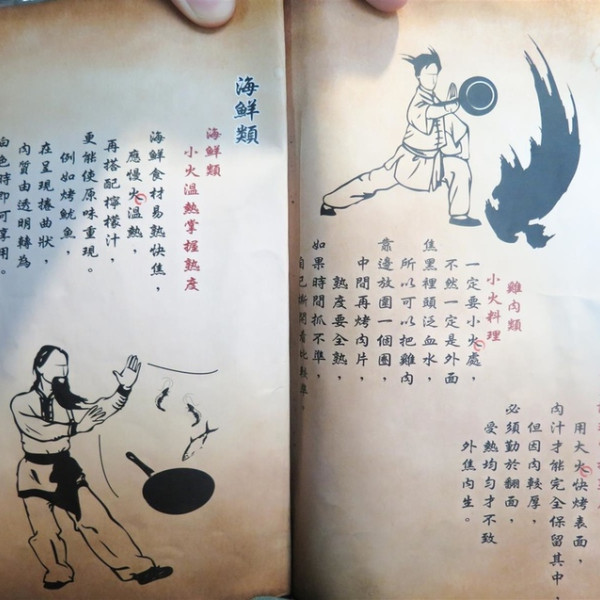 雞肉類
小火料理
一定要小火處，
不然一定是外面
焦黑裡頭泛血水，
所以可以把雞肉
靠邊放圍一個圈，
中間再烤肉片，
熟度要全熟，
如果時間抓不準，
自己撕開看比較準。
用大火快烤表面，
肉汁才能完全保留其中，
但因肉較厚，
必須勤於翻面，
受熱均勻才不致
外焦內生。
海鮮類
海鮮類
小火溫熱掌握熟度
海鮮食材易熟快焦，
應慢火溫熱，
再搭配檸檬汁，
更能使原味重現。
例如烤魷魚，
在呈現捲曲狀，
肉質由透明轉為
白色時即可享用。